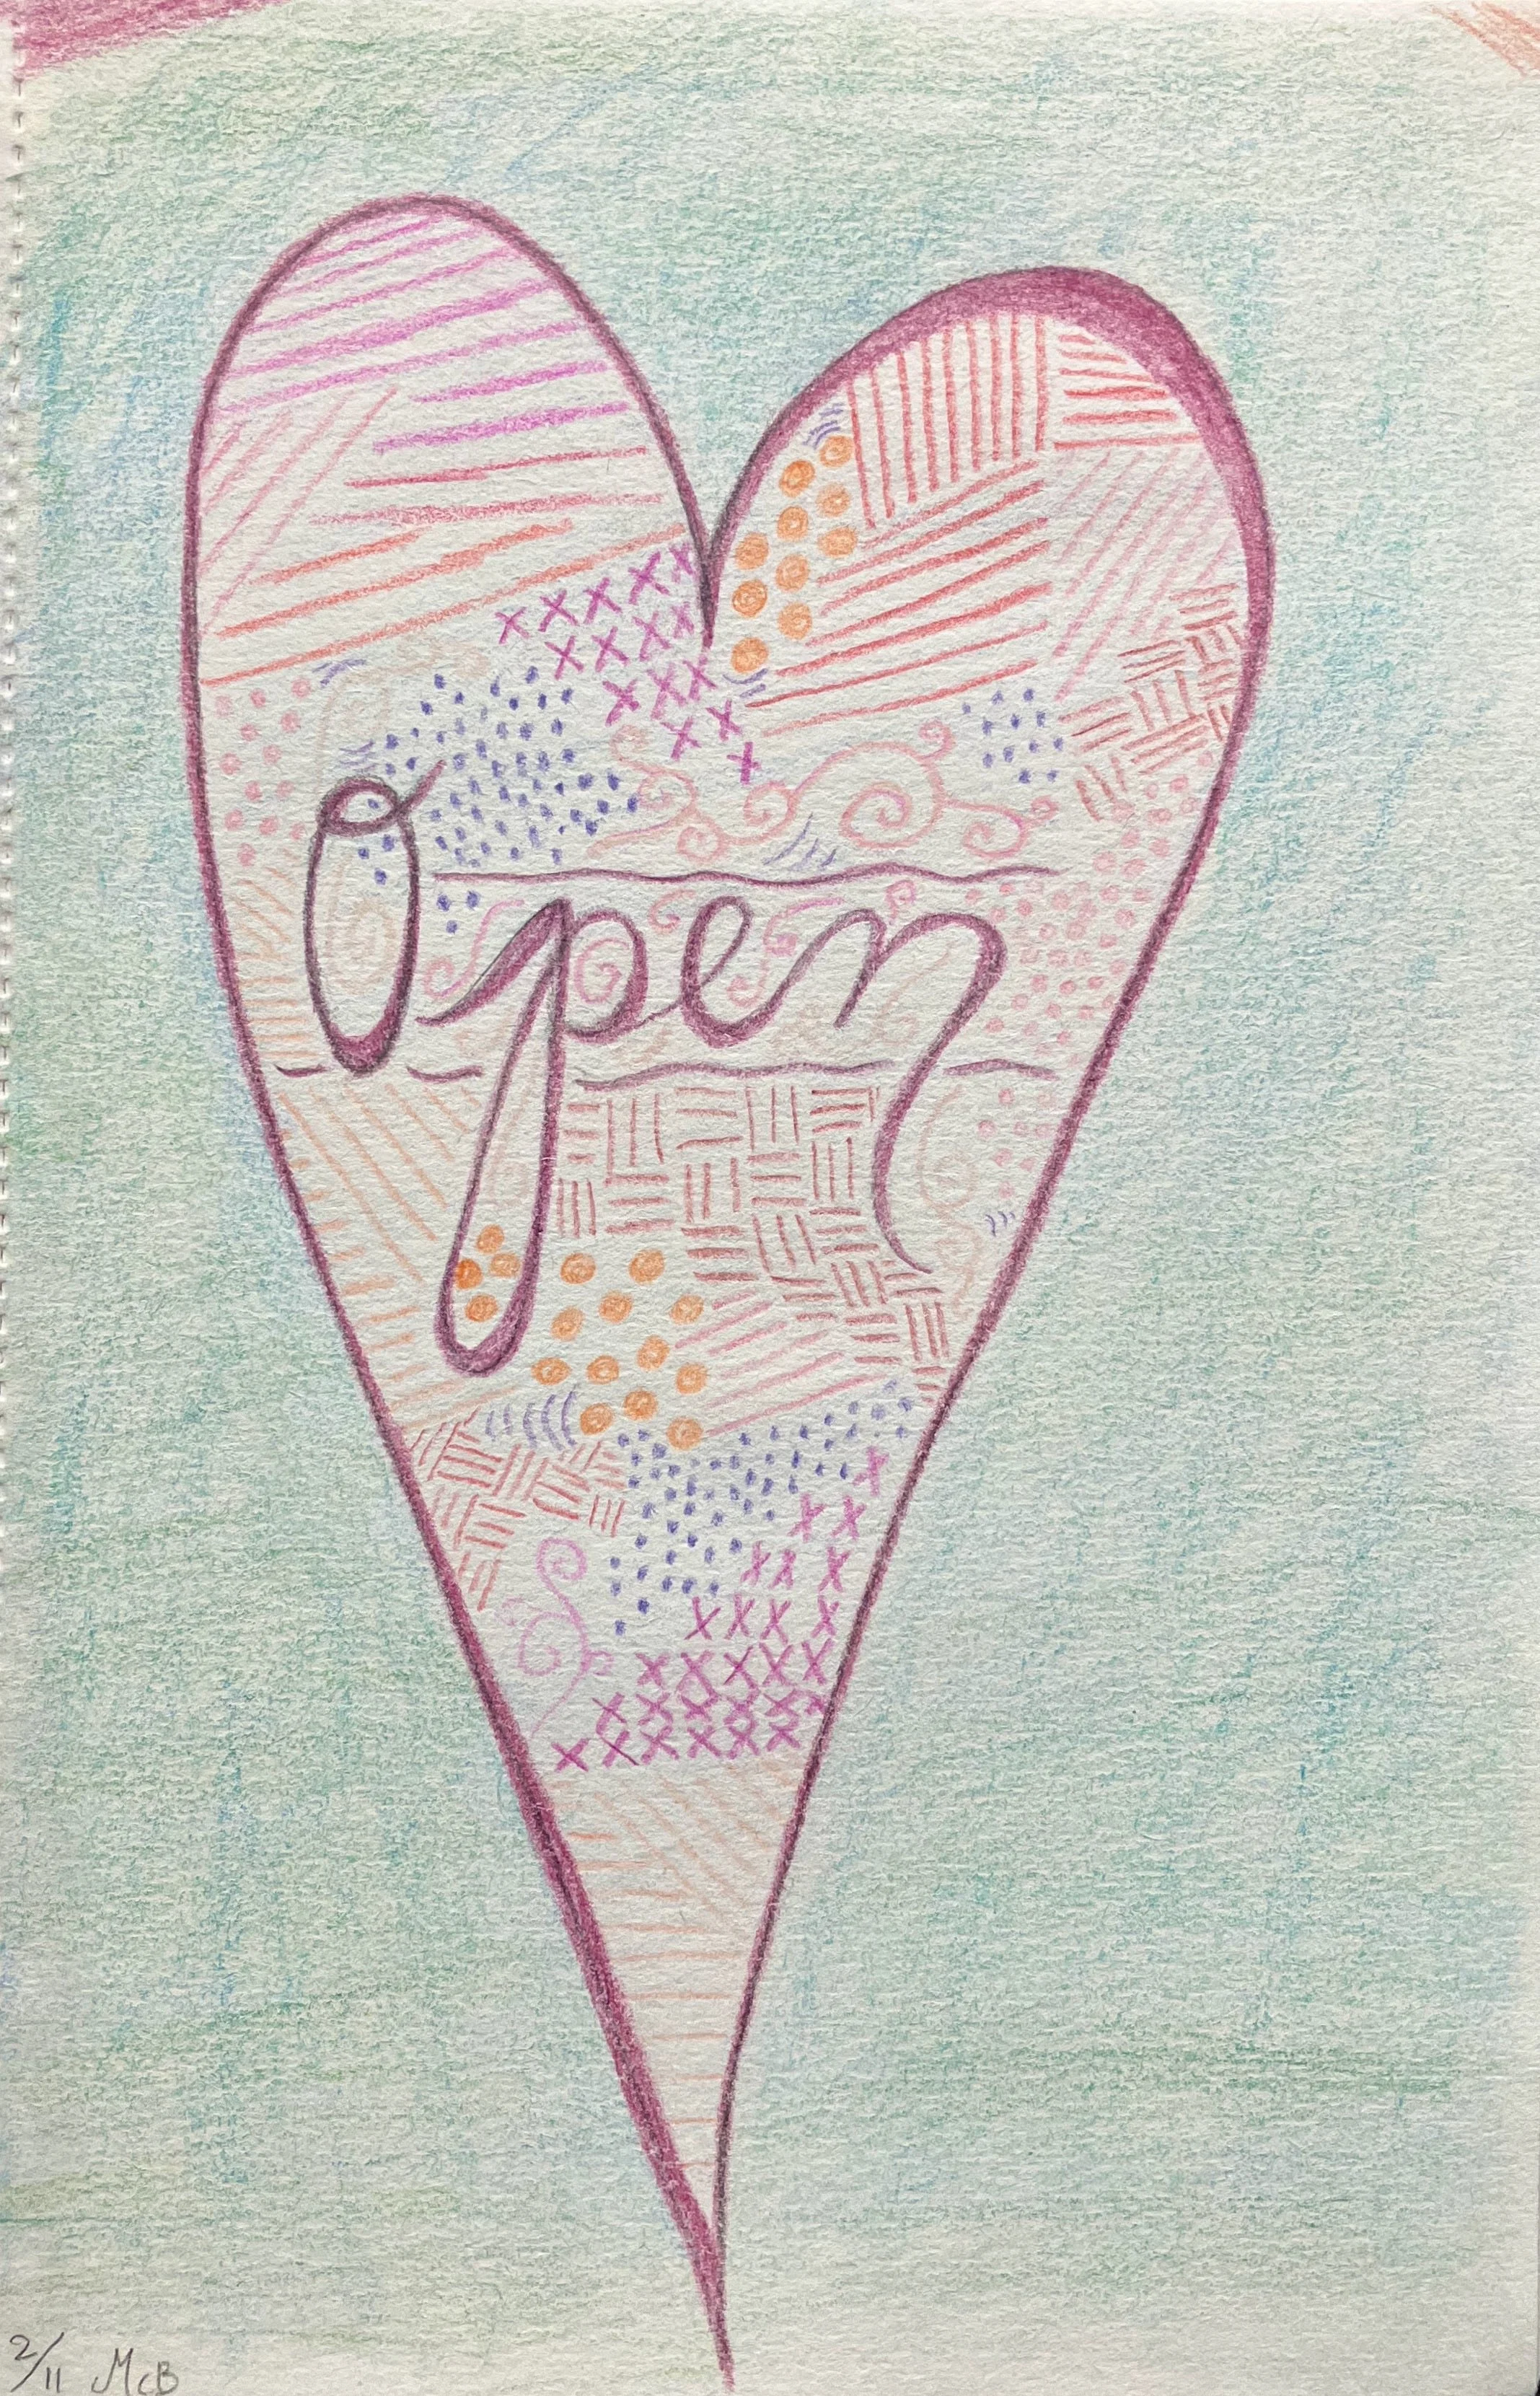 Open
2/11 McB